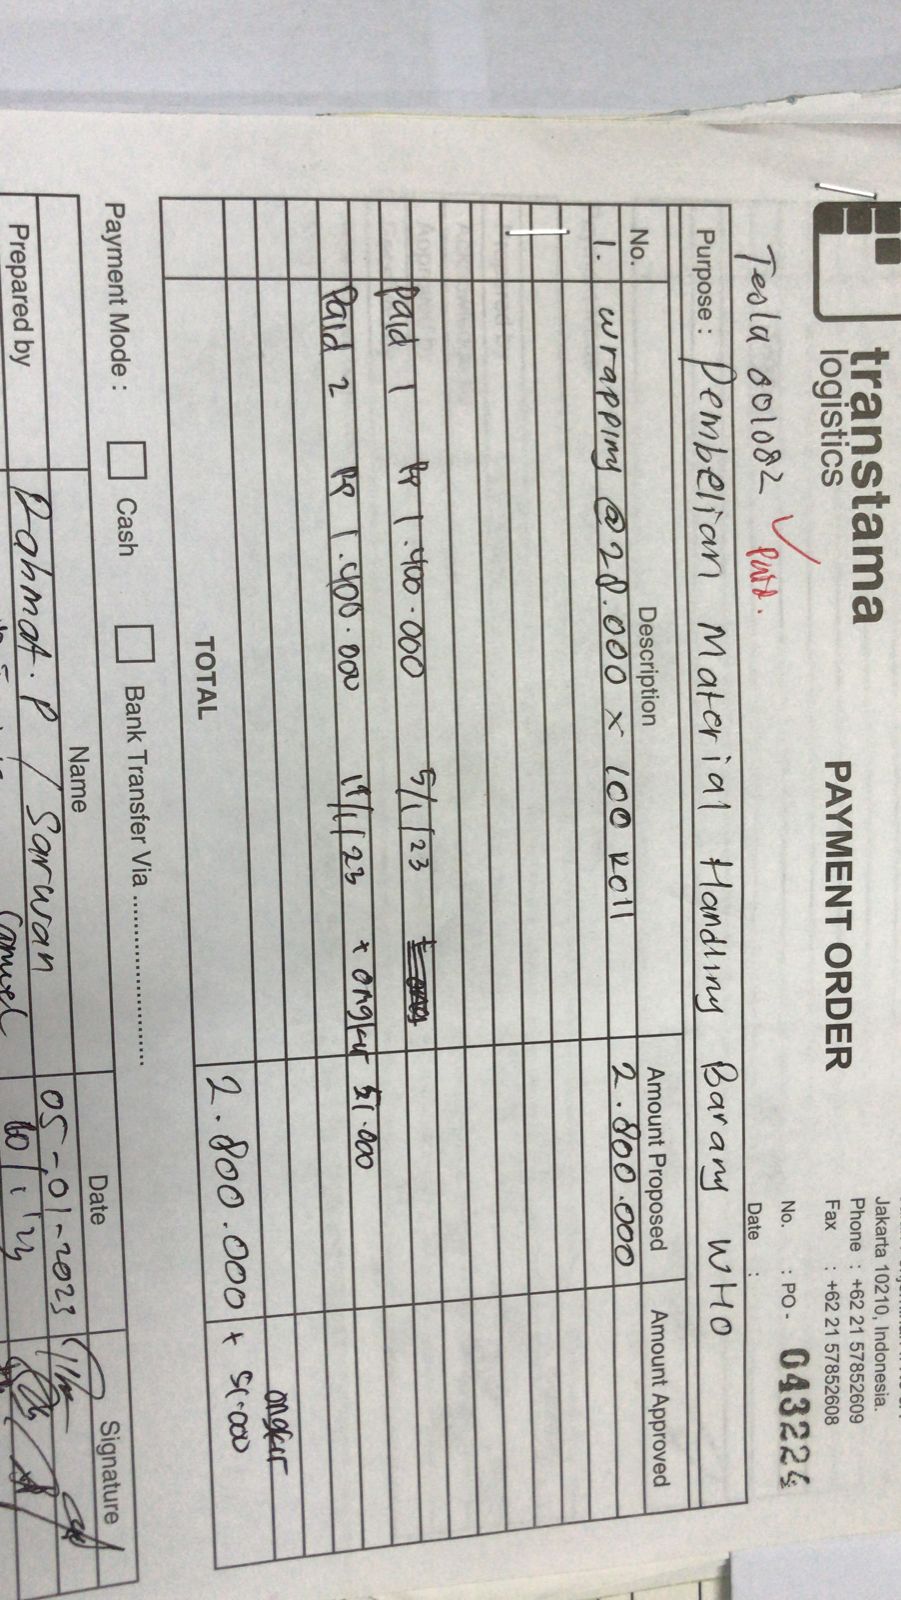 transtama
logistics
PAYMENT ORDER
Jakarta 10210, Indonesia.
Phone : +62 21 57852609
Fax : +62 21 57852608
No. : PO - 043224
Tesla 001082 ✓ Paid.
Date :
Purpose : Pembelian Material Handling Barang WHO
No. Description Amount Proposed Amount Approved
1. wrapping @ 28.000 x 100 Roll 2.800.000
Paid 1 Rp 1.400.000 5/1/23
Paid 2 Rp 1.400.000 19/1/23 + ongkir 51.000
ongkir
TOTAL 2.800.000 + 51.000
Payment Mode : Cash Bank Transfer Via ......................
Name Date Signature
Prepared by Rahmat.P / Sarwan 05-01-2023
10/1/23